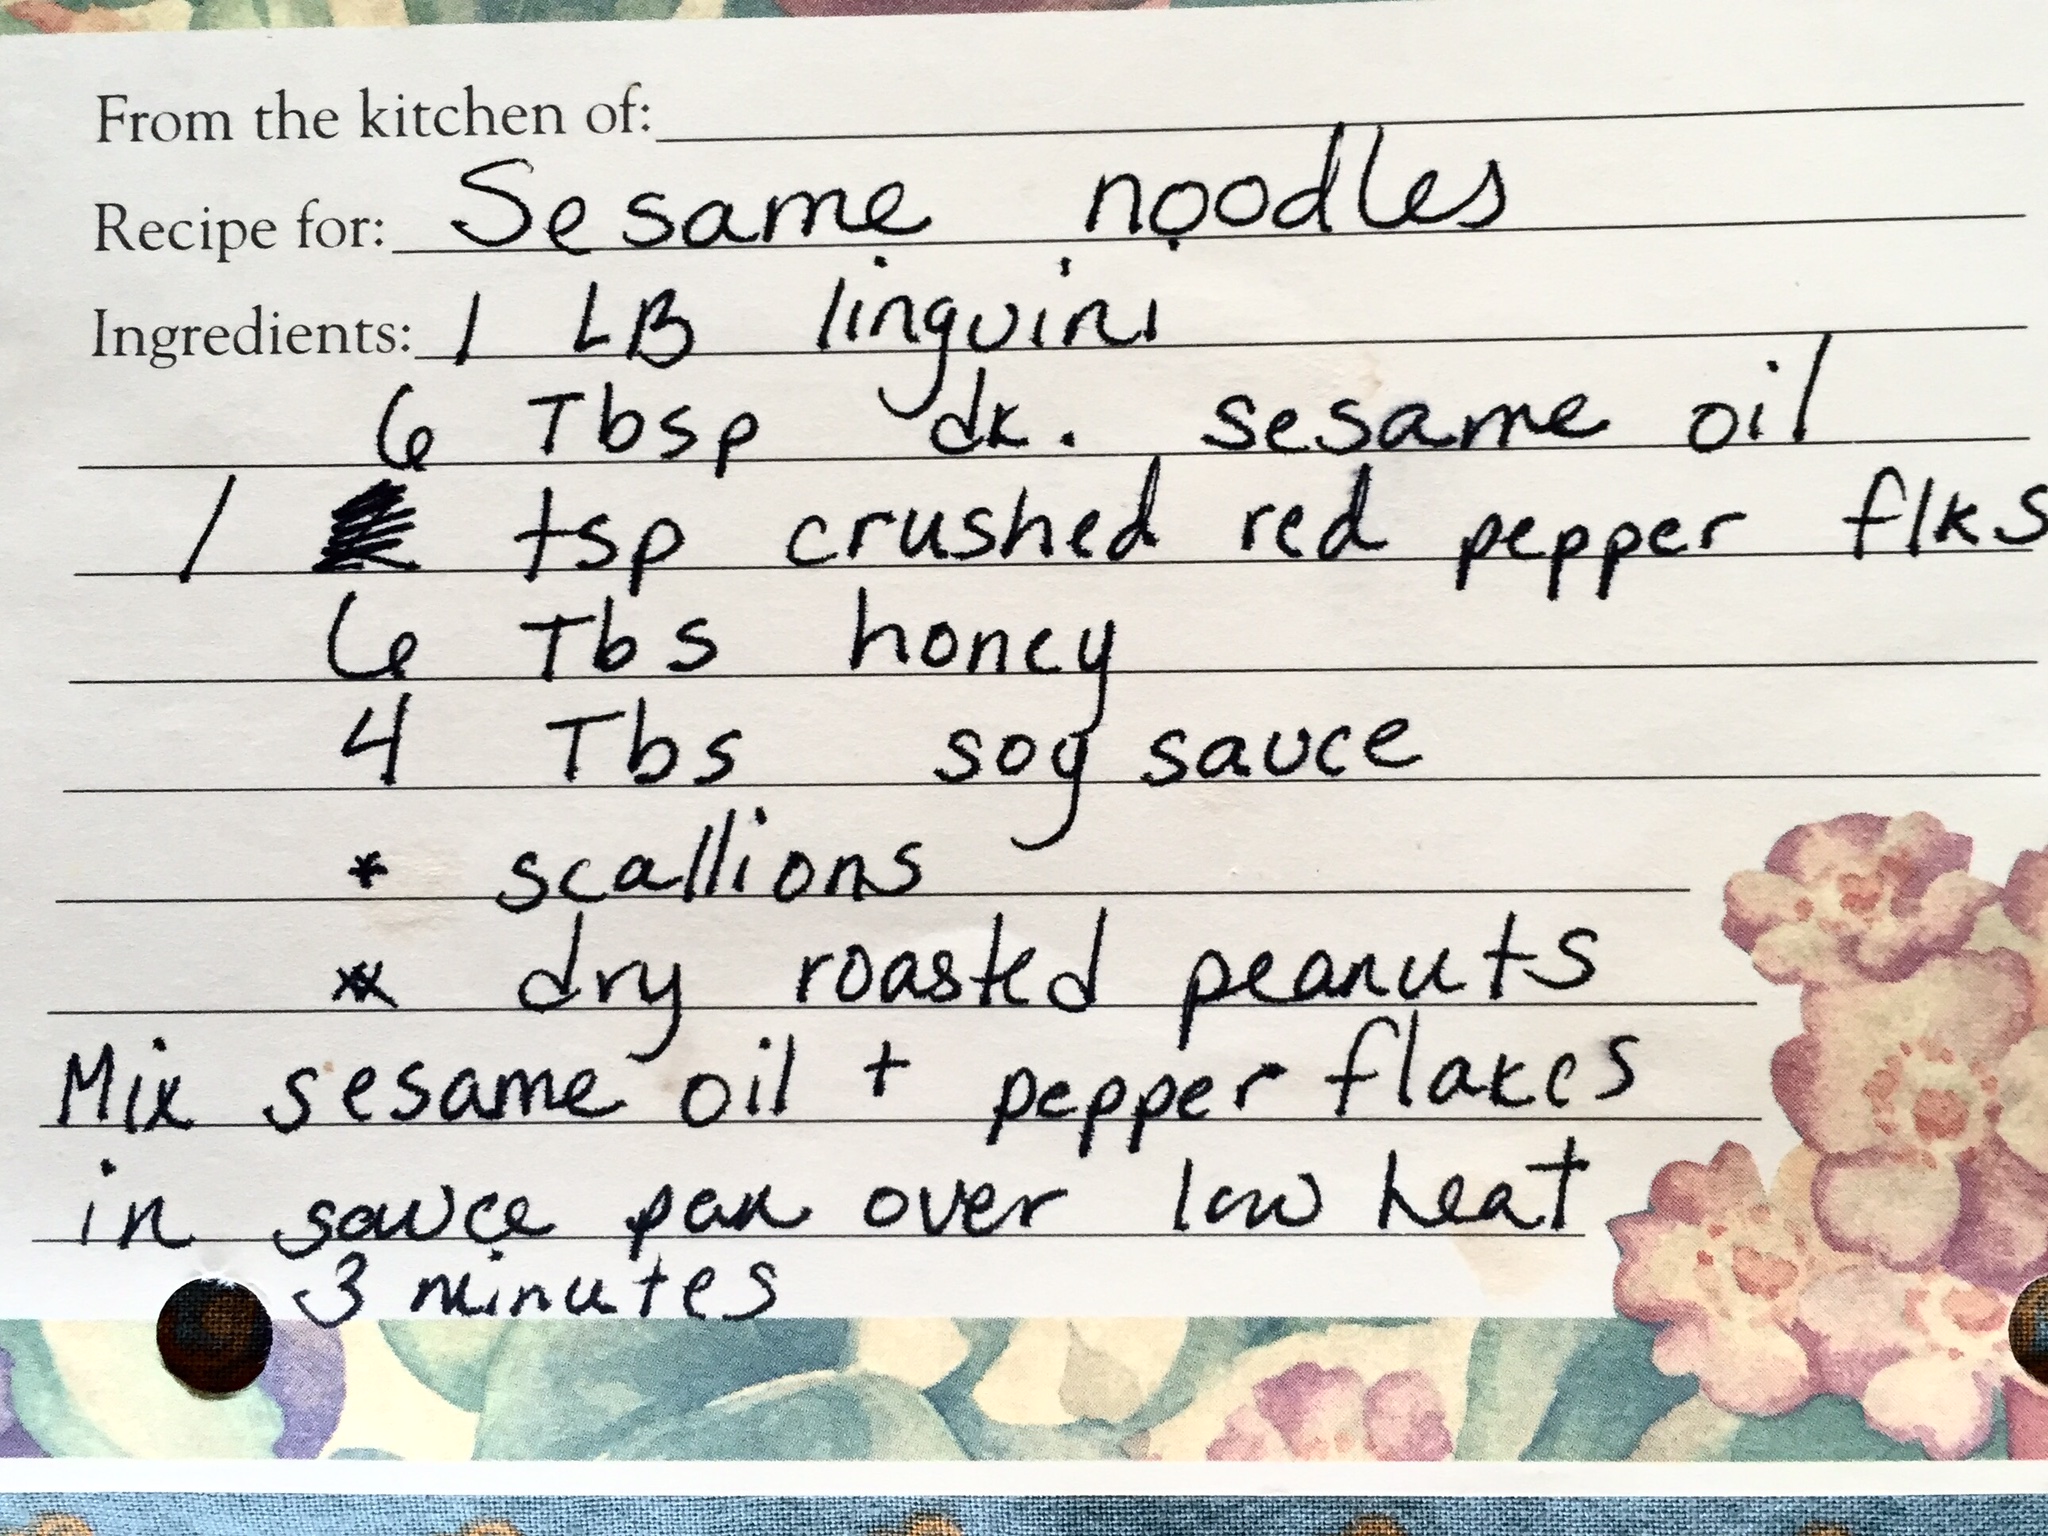 From the kitchen of:
Recipe for: Sesame noodles
Ingredients: 1 LB linguini
6 Tbsp dk. sesame oil
1 tsp crushed red pepper flks
6 Tbs honey
4 Tbs soy sauce
* scallions
* dry roasted peanuts
Mix sesame oil + pepper flakes
in sauce pan over low heat
3 minutes